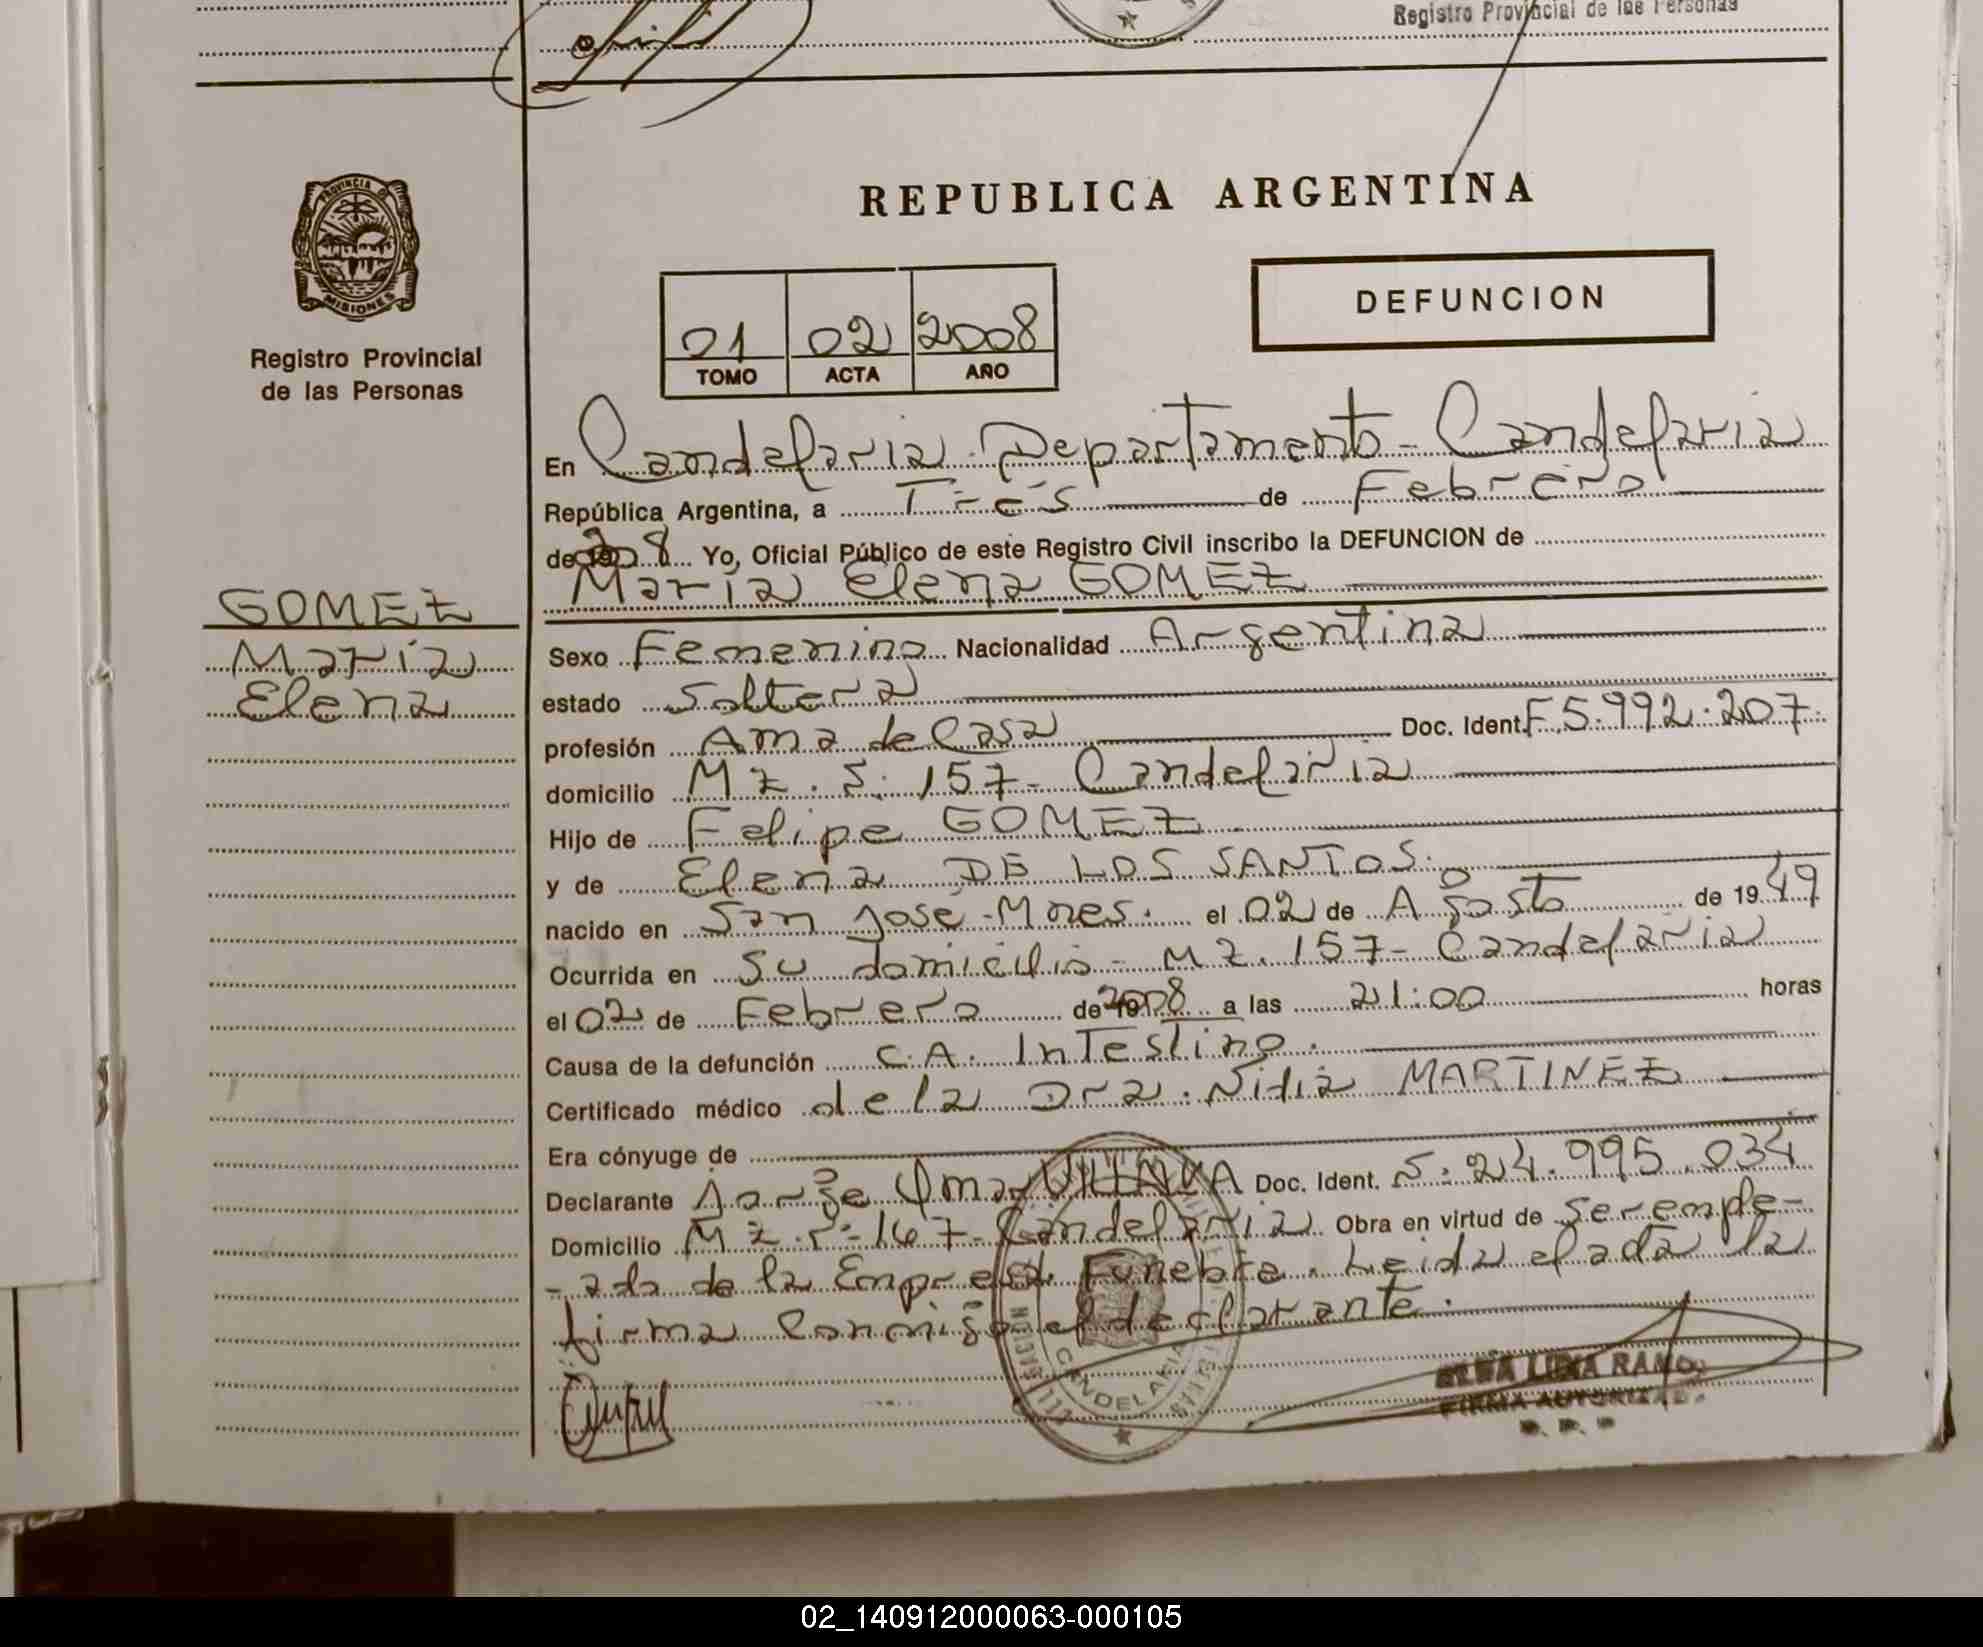 Registro Provincial de las Personas
PROVINCIA DE
MISIONES
Registro Provincial
de las Personas
REPUBLICA ARGENTINA
01 02 2008
TOMO ACTA AÑO
DEFUNCION
En Candelaria - Departamento - Candelaria
República Argentina, a Tres de Febrero
de 2008 Yo, Oficial Público de este Registro Civil inscribo la DEFUNCION de
María Elena GOMEZ
GOMEZ
María
Elena
Sexo Femenino Nacionalidad Argentina
estado Soltera
profesión Ama de Casa Doc. Ident. F 5.992.207
domicilio Mz. S: 157 - Candelaria
Hijo de Felipe GOMEZ
y de Elena DE LOS SANTOS.
nacido en San José - Mnes. el 02 de Agosto de 1949
Ocurrida en su domicilio - Mz. 157 - Candelaria
el 02 de Febrero de 2008 a las 21:00 horas
Causa de la defunción C.A. Intestino.
Certificado médico de la Dra. Nidia MARTINEZ
Era cónyuge de
Declarante Jorge Omar VILLALVA Doc. Ident. S: 24.995.034
Domicilio Mz. 167 - Candelaria Obra en virtud de ser emple-
- ado de la Empresa Funebre. Leida el acta la
firma conmigo el declarante.
CANDELARIA
FIRMA AUTORIZADA
02_140912000063-000105